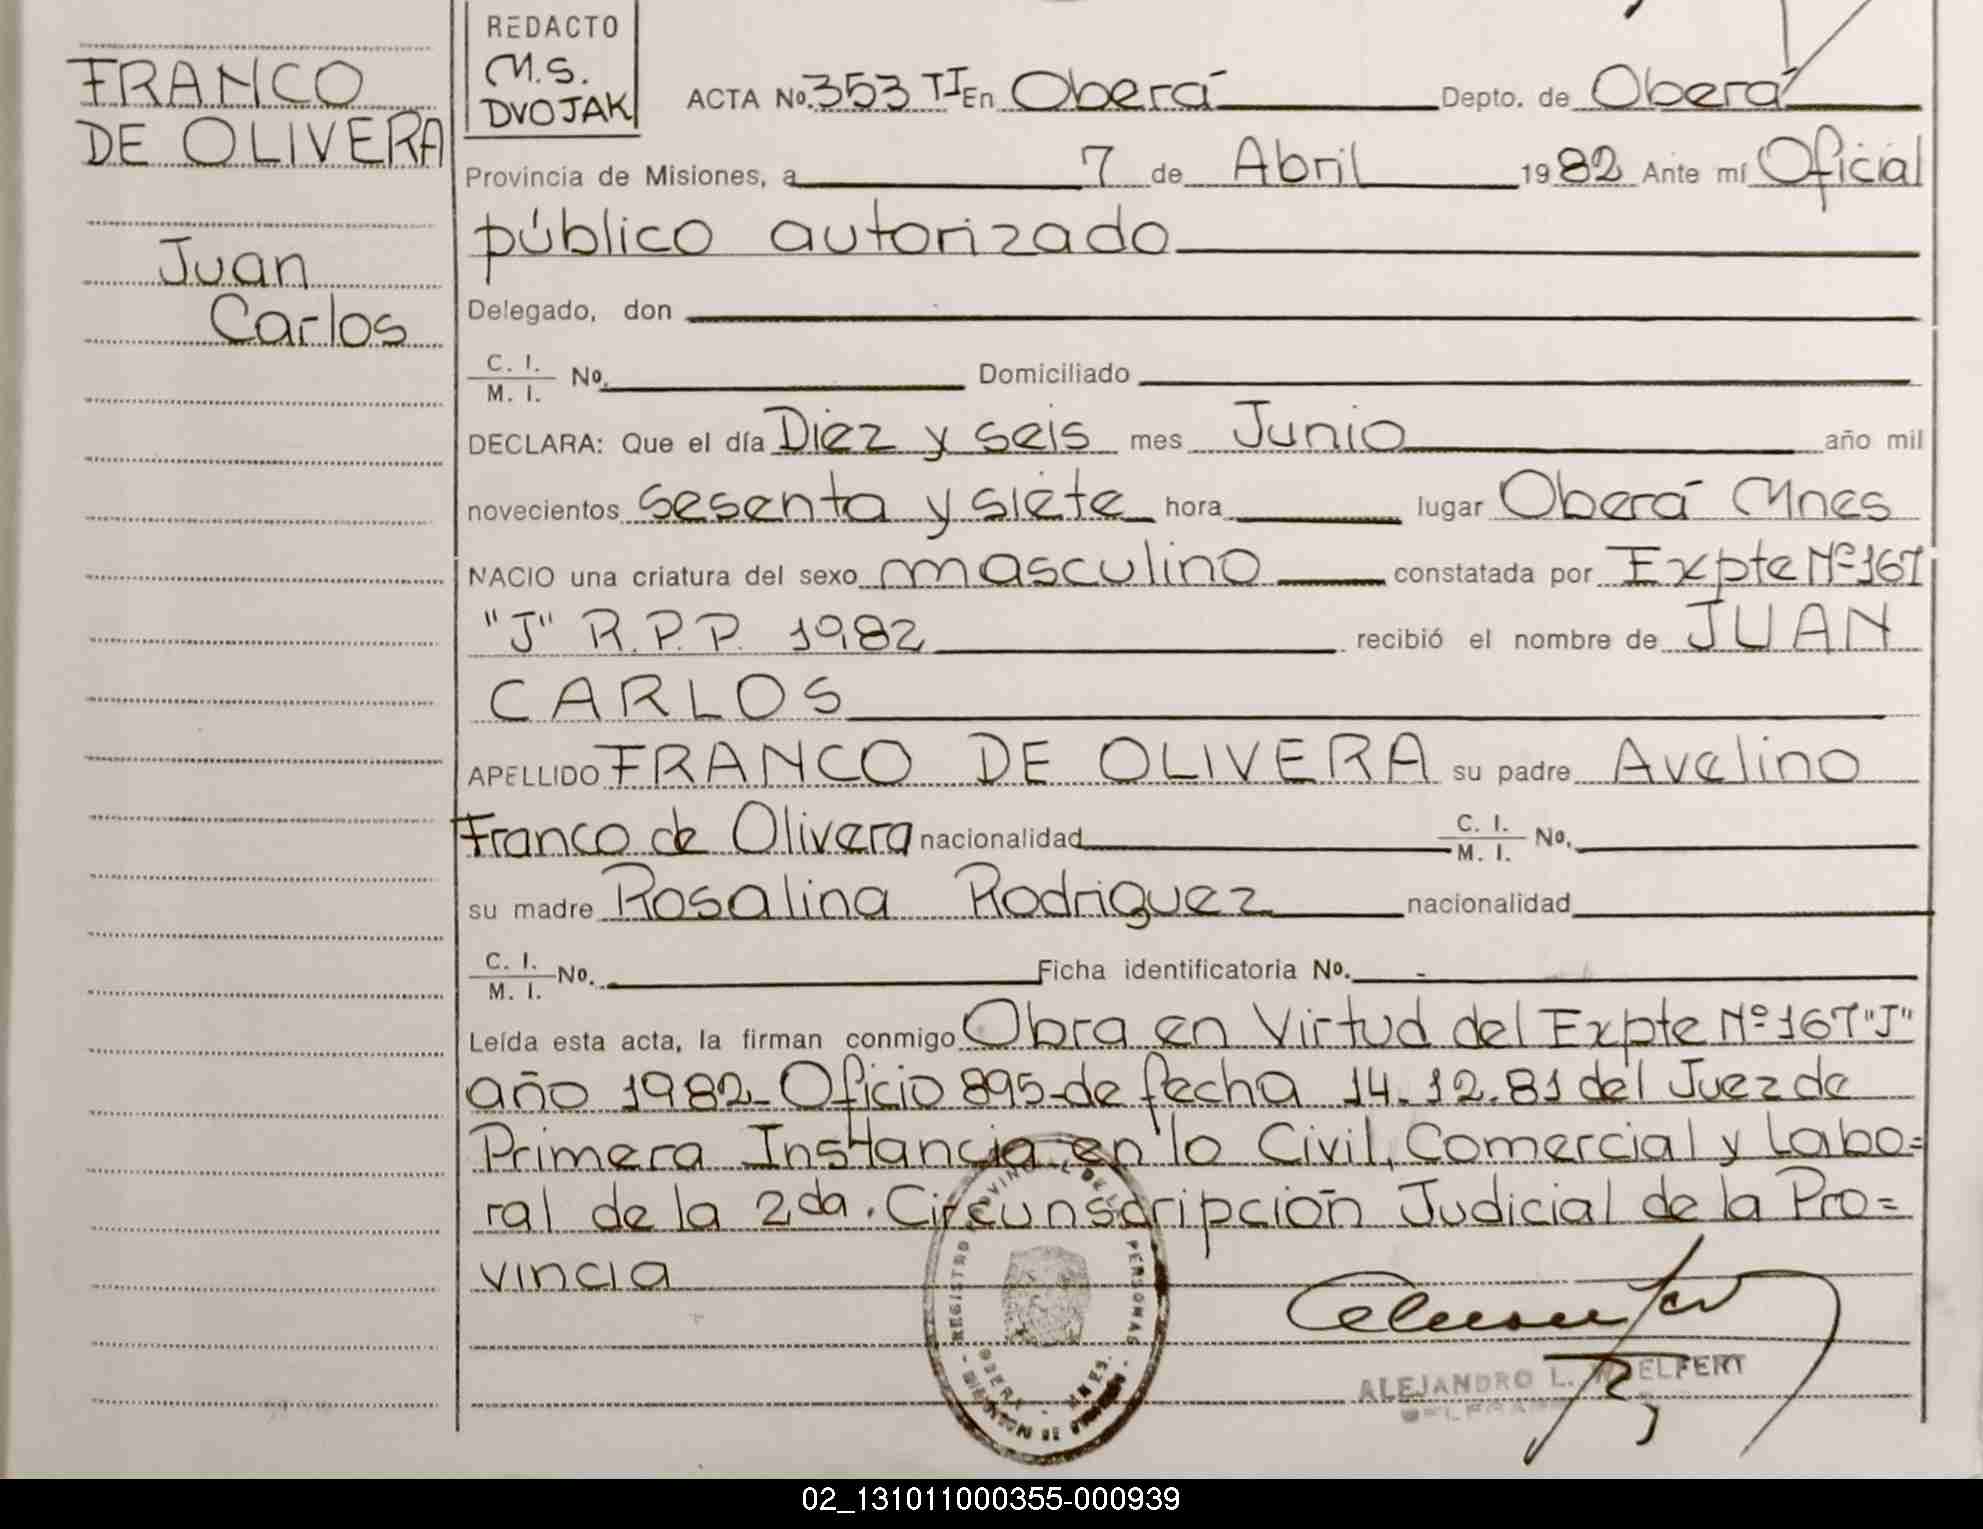 FRANCO
DE OLIVERA
Juan
Carlos
REDACTO
M.S.
DVOJAK
ACTA No. 353 TI En Oberá Depto. de Oberá
Provincia de Misiones, a 7 de Abril 1982 Ante mí Oficial
público autorizado
Delegado, don
C. I.
M. I. No. Domiciliado
DECLARA: Que el día Diez y seis mes Junio año mil
novecientos sesenta y siete hora lugar Oberá Mnes
NACIO una criatura del sexo masculino constatada por Expte Nº 167
"J" R.P.P. 1982 recibió el nombre de JUAN
CARLOS
APELLIDO FRANCO DE OLIVERA su padre Avelino
Franco de Olivera nacionalidad C. I.
M. I. No.
su madre Rosalina Rodriguez nacionalidad
C. I.
M. I. No. Ficha identificatoria No. -
Leída esta acta, la firman conmigo Obra en Virtud del Expte Nº 167 "J"
año 1982- Oficio 895-de fecha 14.12.81 del Juez de
Primera Instancia en lo Civil, Comercial y Labo=
ral de la 2da. Circunscripción Judicial de la Pro=
vincia
REGISTRO PROVINCIAL DE LAS PERSONAS
OBERA - MNES.
ALEJANDRO L. ELFERT
02_131011000355-000939